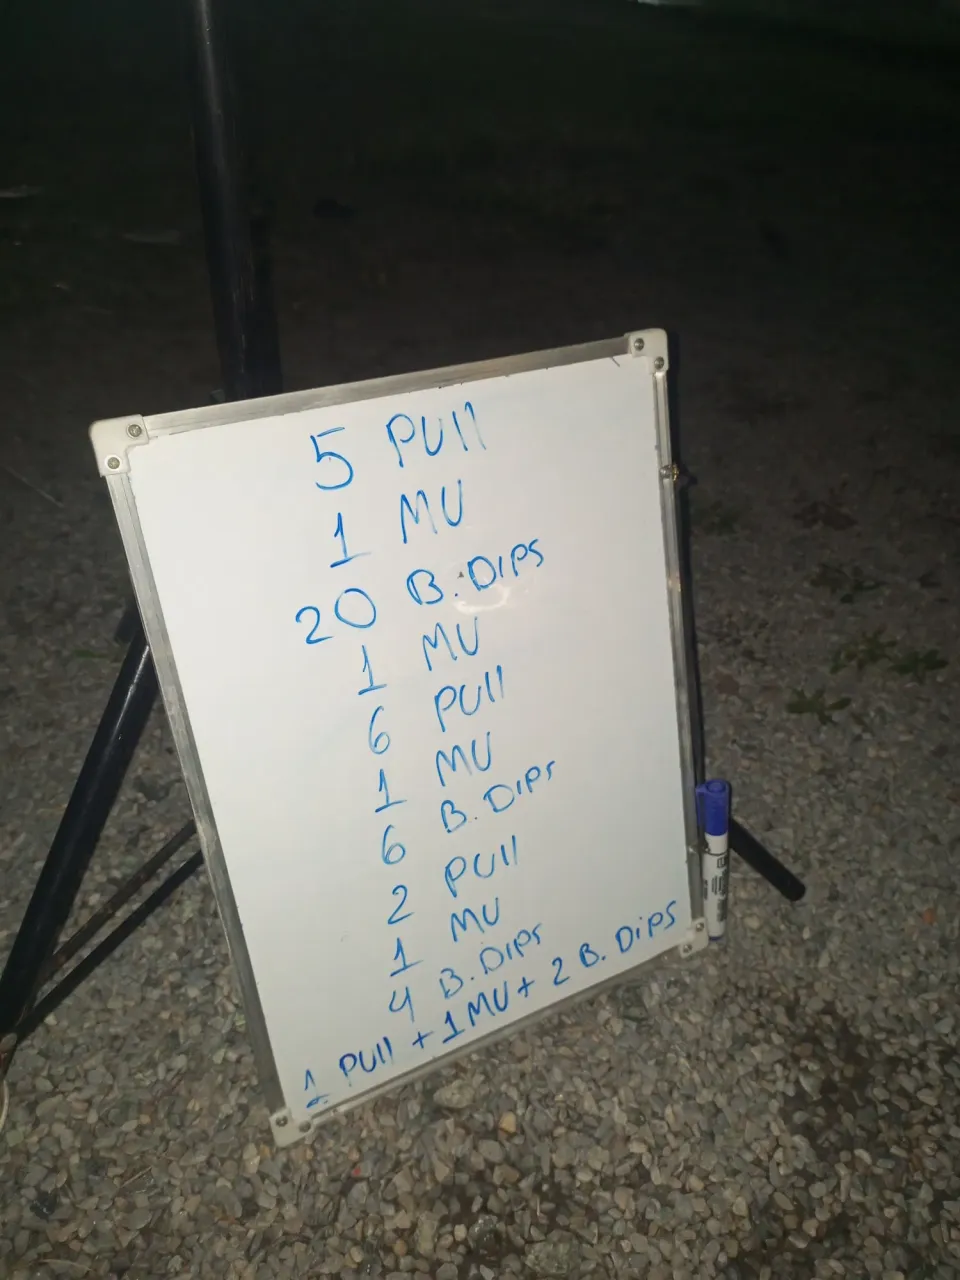 5 PUll
1 MU
20 B. DIPS
1 MU
6 PUll
1 MU
6 B. DIPS
2 PUll
1 MU
4 B. DIPS
1 PUll + 1 MU + 2 B. DiPS